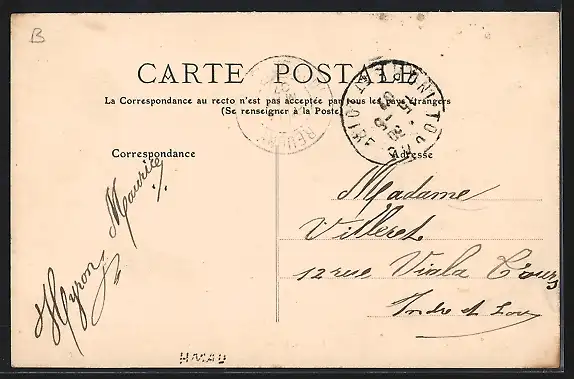 B
CARTE POSTALE
La Correspondance au recto n'est pas acceptée par tous les pays étrangers
(Se renseigner à la Poste)
Correspondance
Adresse
Maurice
Madame
Villeret
12 rue Viala Tours
Indre et Loi